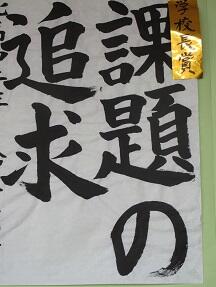 学校長賞
課題の
追求